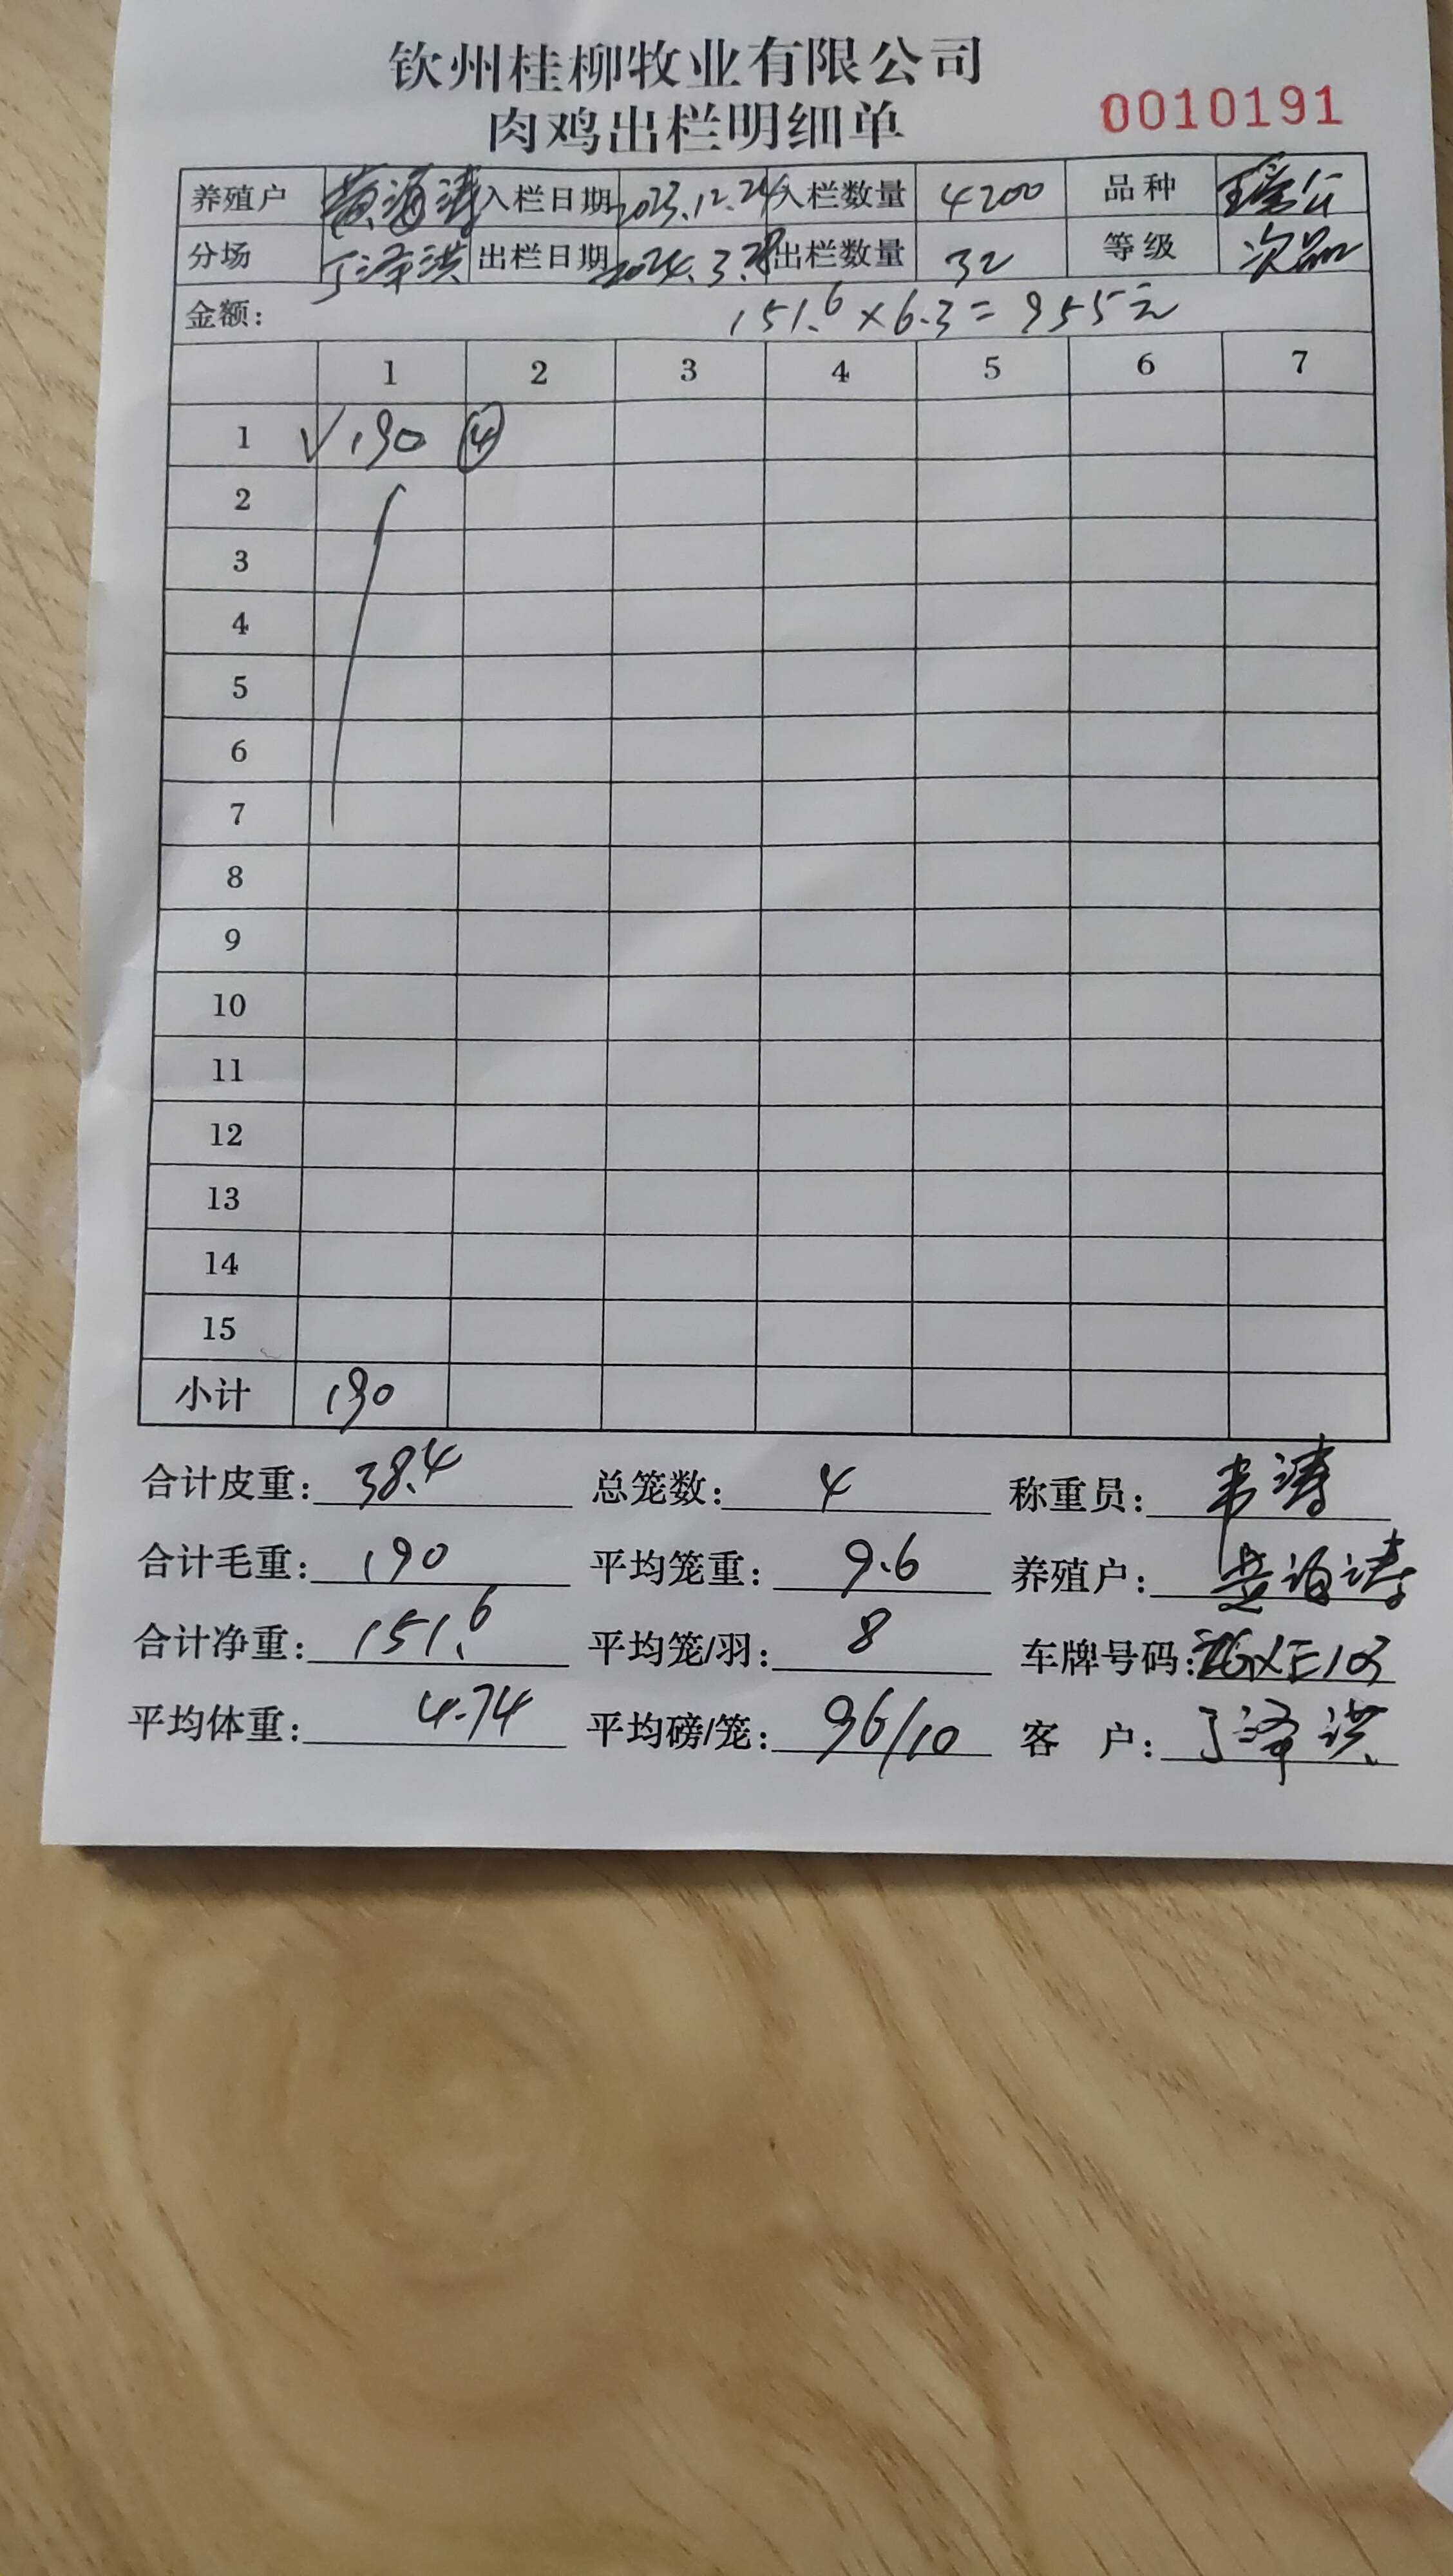 钦州桂柳牧业有限公司
肉鸡出栏明细单 0010191
养殖户 黄海涛 入栏日期 2023.12.24 入栏数量 4200 品种
分场 丁泽洪 出栏日期 2024.3. 出栏数量 32 等级 次品
金额: 151.6×6.3=955元
1 2 3 4 5 6 7
1 √190 ④
2
3
4
5
6
7
8
9
10
11
12
13
14
15
小计 190
合计皮重: 38.4 总笼数: 4 称重员: 韦涛
合计毛重: 190 平均笼重: 9.6 养殖户: 黄海涛
合计净重: 151.6 平均笼/羽: 8 车牌号码:
平均体重: 4.74 平均磅/笼: 96/10 客 户: 丁泽洪